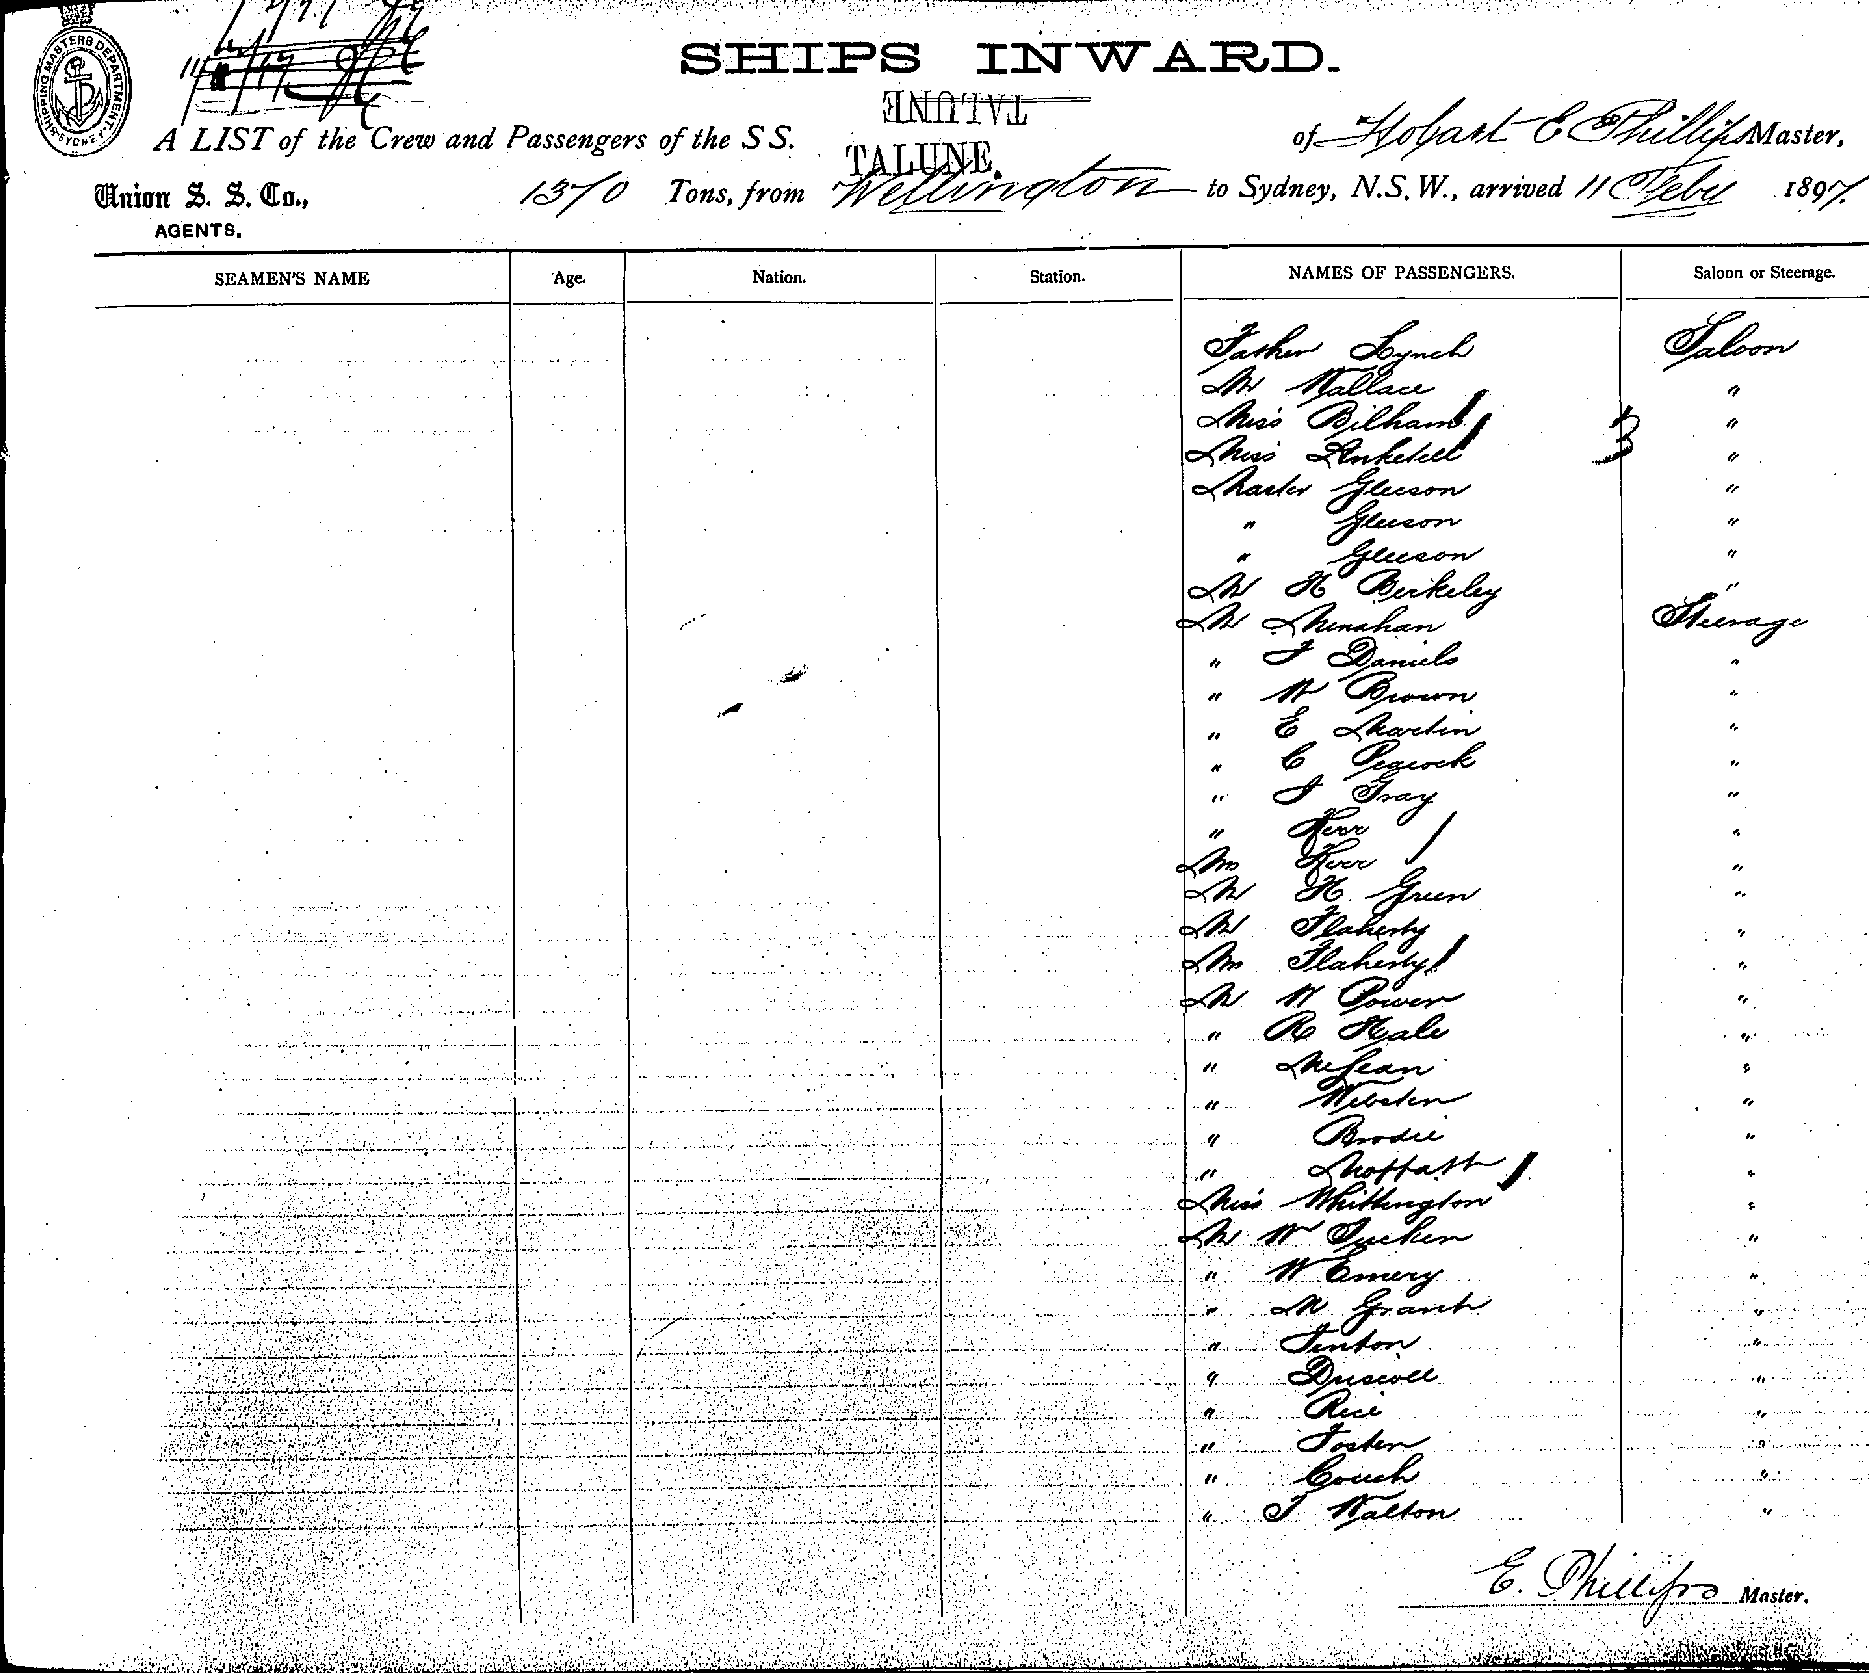 SHIPS INWARD.
SHIPPING MASTERS DEPARTMENT
SYDNEY
TALUNE
A LIST of the Crew and Passengers of the SS. TALUNE. of Hobart E Phillips Master,
Union S. S. Co., 1370 Tons, from Wellington to Sydney, N.S.W., arrived 11 Feby 1897.
AGENTS.
SEAMEN'S NAME Age. Nation. Station. NAMES OF PASSENGERS. Saloon or Steerage.
Father Lynch Saloon
Mr Wallace "
Miss Bilham "
Miss "
3
Master Gleeson "
" Gleeson "
" Gleeson "
Mr H Berkeley "
Mr Menahan Steerage
" J Daniels "
" W Brown "
" E Martin "
" C Peacock "
" J Gray "
" Kerr "
Mrs Kerr "
Mr H. Green "
Mr Flaherty "
Mrs Flaherty "
Mr W Power "
" R Hale "
" McLean "
" Webster "
" Brodie "
" Moffatt "
Miss Whittington "
Mr W Tucker "
" W Emery "
" M Grant "
" Fenton "
" Driscoll "
" Rice "
" Foster "
" Couch "
" J Walton "
E. Phillips Master.